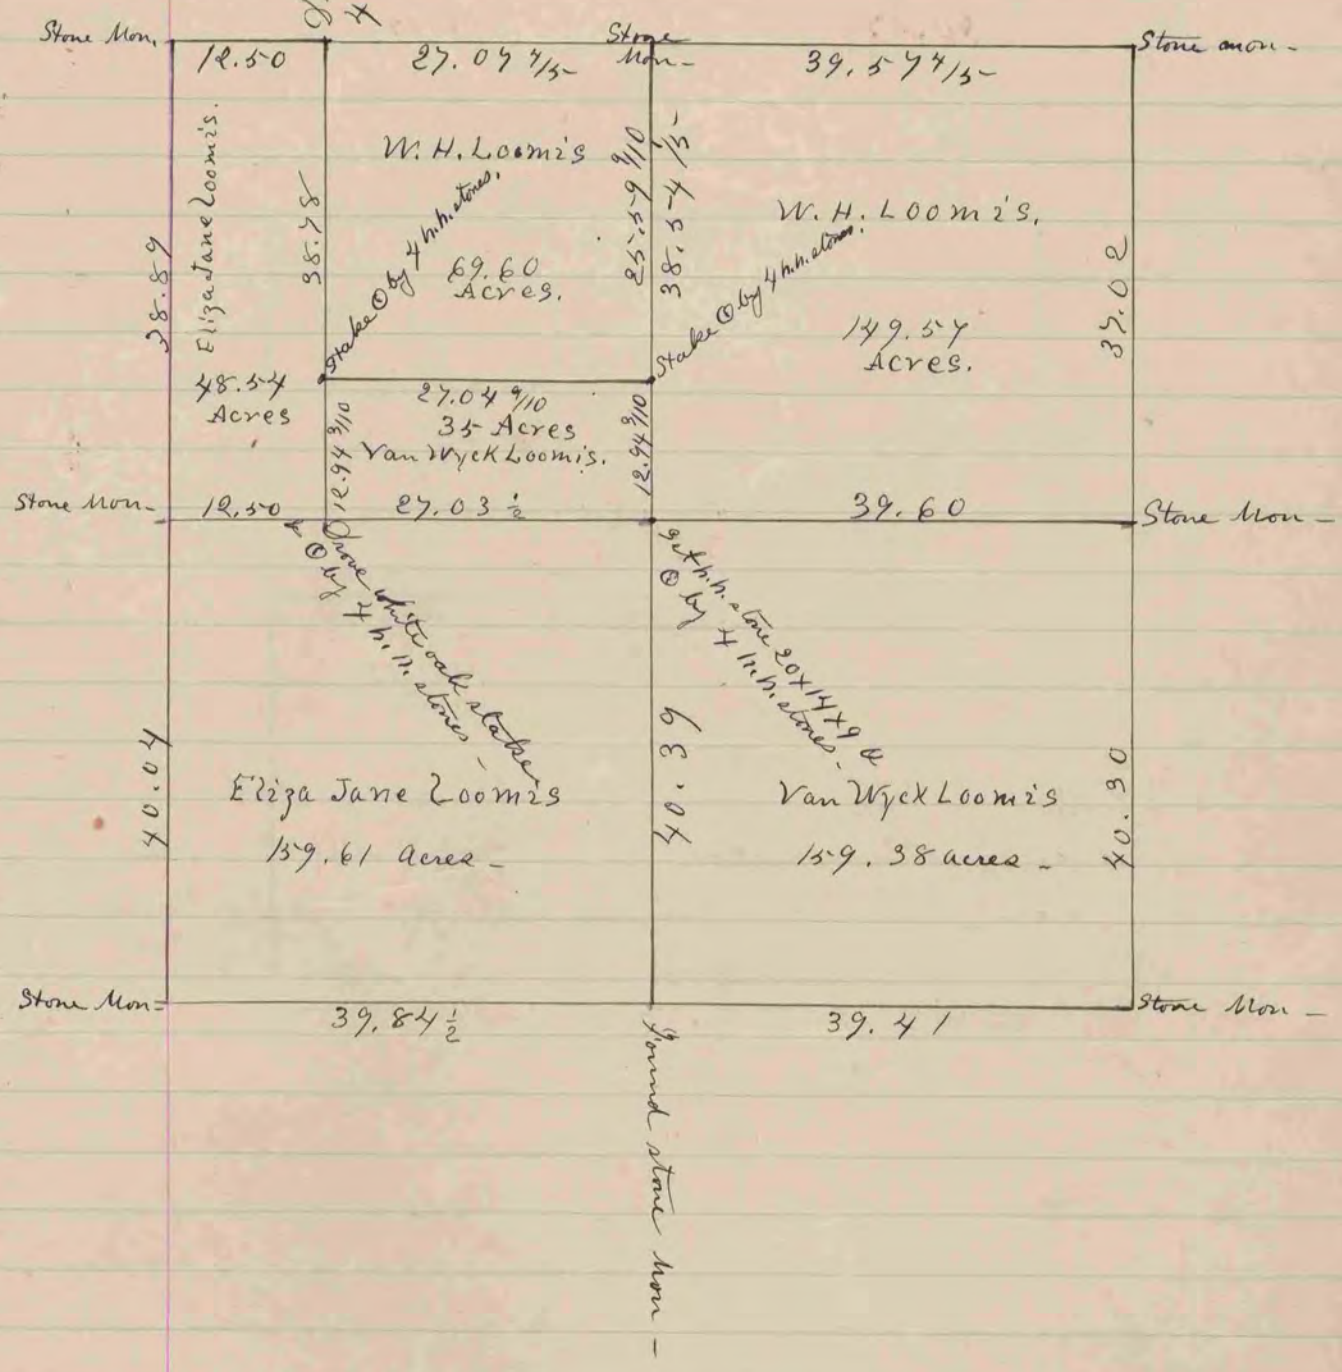 Stone Mon.
12.50
27.07 4/5
Stone
Mon-
39.57 4/5
Stone mon-
Eliza Jane Loomis.
38.89
38.78
W. H. Loomis
69.60
Acres.
Stake ⊙ by 4 h.h. stones.
25.59 9/10
W. H. Loomis.
149.57
Acres.
Stake ⊙ by 4 h.h. stones.
37.02
48.54
Acres
27.04 9/10
35 Acres
Van Wyck Loomis.
12.94 3/10
12.94 3/10
Stone Mon-
12.50
27.03 ½
39.60
Stone Mon-
Drove white oak stake
& ⊙ by 4 h.h. stones-
set h.h. stone 20x14x9 &
⊙ by 4 h.h. stones-
40.04
Eliza Jane Loomis
159.61 acres-
40.39
Van Wyck Loomis
159.38 acres-
40.30
Stone Mon-
39.84 ½
39.41
Stone Mon-
Found stone mon-